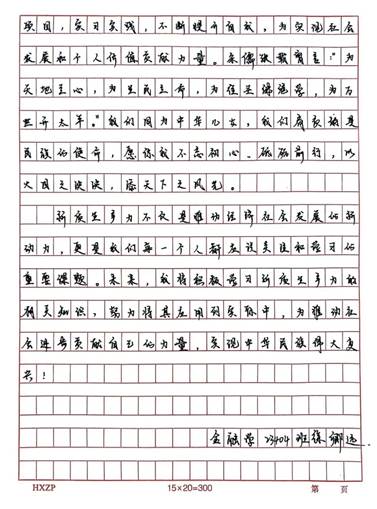 项目，实习实践，不断提升自我，为实现社会
发展和个人价值贡献力量。宋儒张载有言："为
天地立心，为生民立命，为往圣继绝学，为万
世开太平。"我们同为中华儿女，我们肩负振兴
民族的使命，愿你我不忘初心、砥砺前行，以
火日之泱泱，添天下之风光。
新质生产力不仅是推动经济社会发展的新
动力，更是我们每一个人都应该关注和学习的
重要课题。未来，我将积极学习新质生产力的
相关知识，努力将其应用到实际中，为推动社
会进步贡献自己的力量，实现中华民族伟大复
兴！
金融学23404班徐
HXZP 15×20=300 第 页